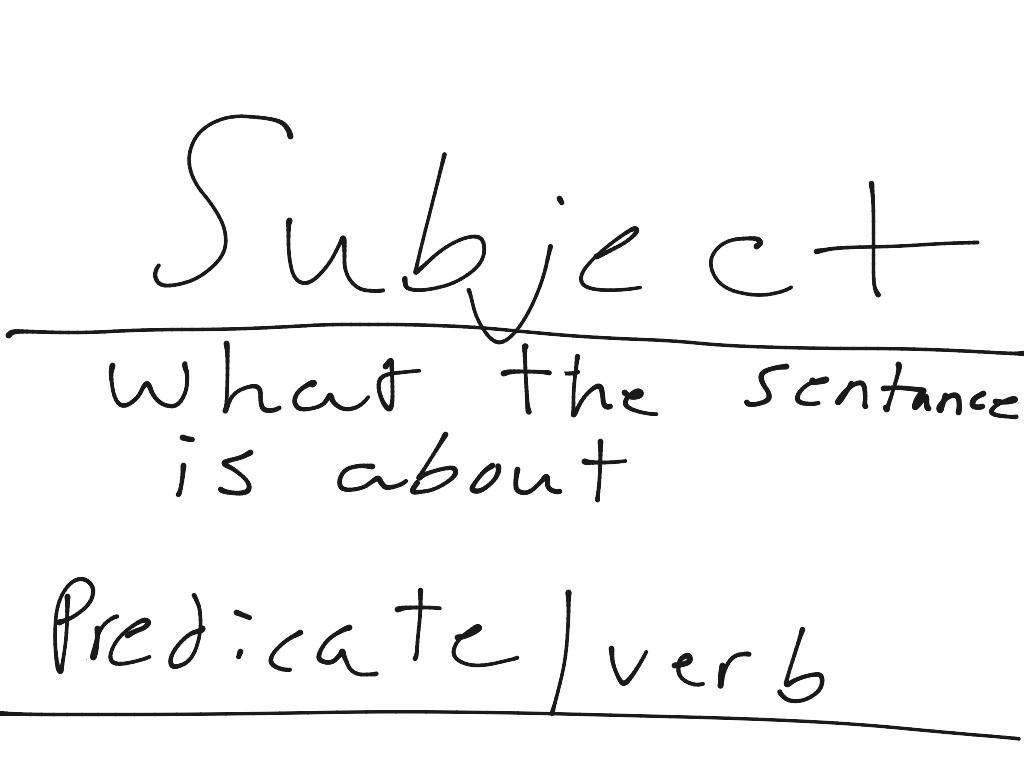 Subject
What the sentance
is about
Predicate/verb